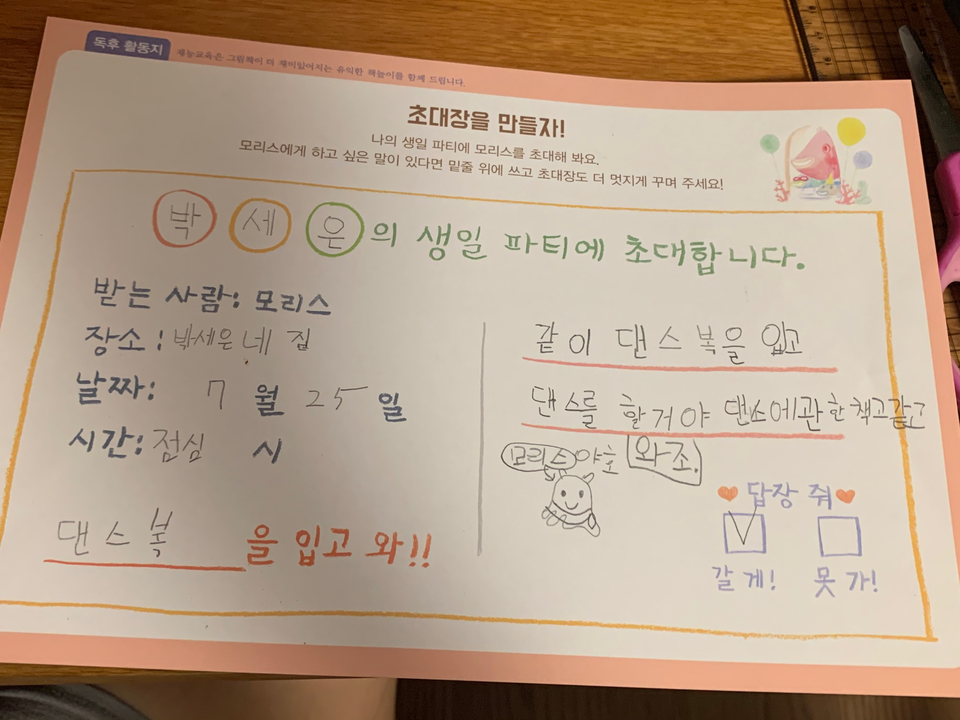 독후 활동지
재능교육은 그림책이 더 재미있어지는 유익한 책놀이를 함께 드립니다.
초대장을 만들자!
나의 생일 파티에 모리스를 초대해 봐요.
모리스에게 하고 싶은 말이 있다면 밑줄 위에 쓰고 초대장도 더 멋지게 꾸며 주세요!
박 세 은의 생일 파티에 초대합니다.
받는 사람: 모리스
장소: 박세은네 집
날짜: 7월 25일
시간: 점심 시
댄스복을 입고 와!!
같이 댄스복을 입고
댄스를 할거야 댄스에관한책고같고
모리스야초 와조.
답장 줘
갈게! 못 가!